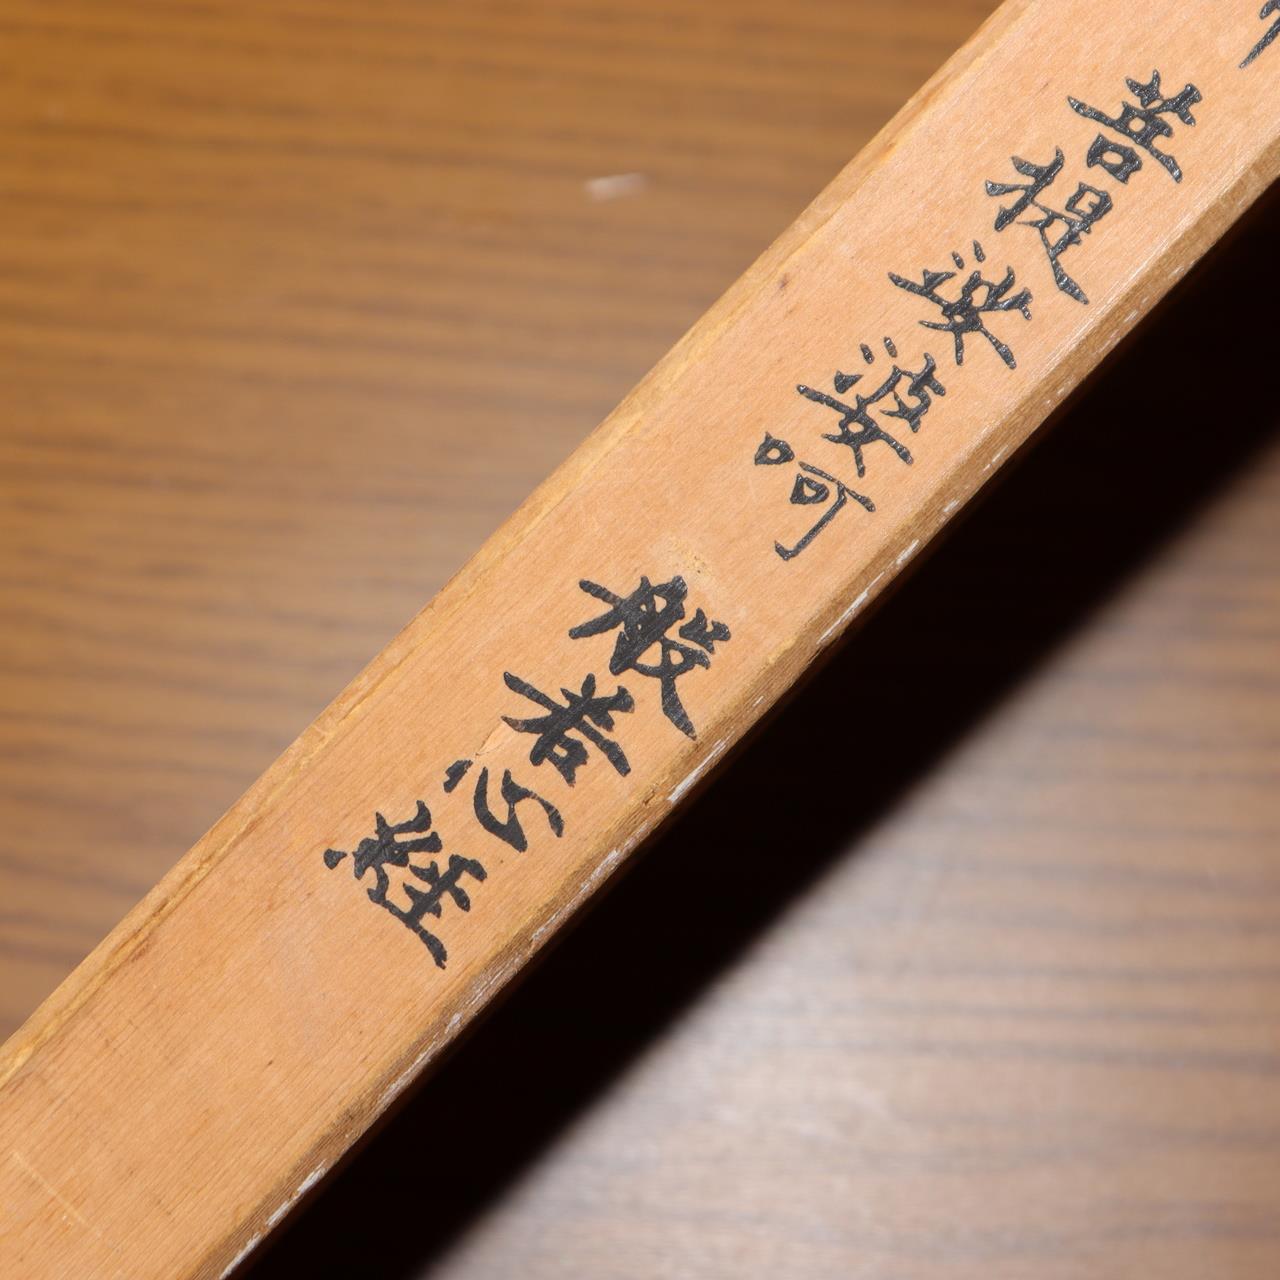 菩提娑婆呵 般若心経